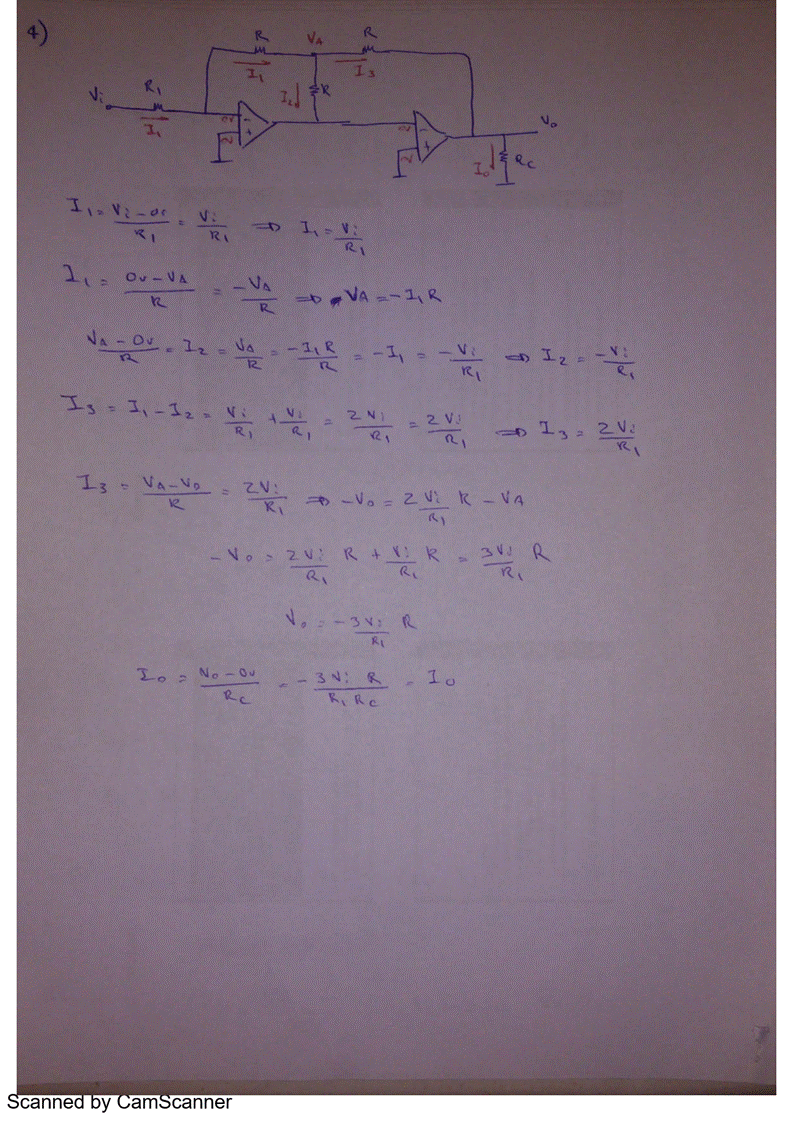 4)
R VA R
I1 I3
Vi R1 I2 R
I1
- + - + Vo
Io Rc
I1 = Vi - 0v / R1 = Vi / R1 ⇒ I1 = Vi / R1
I1 = 0v - VA / R = -VA / R ⇒ VA = -I1 R
VA - 0v / R = I2 = VA / R = -I1 R / R = -I1 = -Vi / R1 ⇒ I2 = -Vi / R1
I3 = I1 - I2 = Vi / R1 + Vi / R1 = 2Vi / R1 = 2Vi / R1 ⇒ I3 = 2Vi / R1
I3 = VA - Vo / R = 2Vi / R1 ⇒ -Vo = 2 Vi / R1 R - VA
-Vo = 2Vi / R1 R + Vi / R1 R = 3Vi / R1 R
Vo = -3Vi / R1 R
Io = Vo - 0v / Rc = -3Vi R / R1 Rc = Io
Scanned by CamScanner